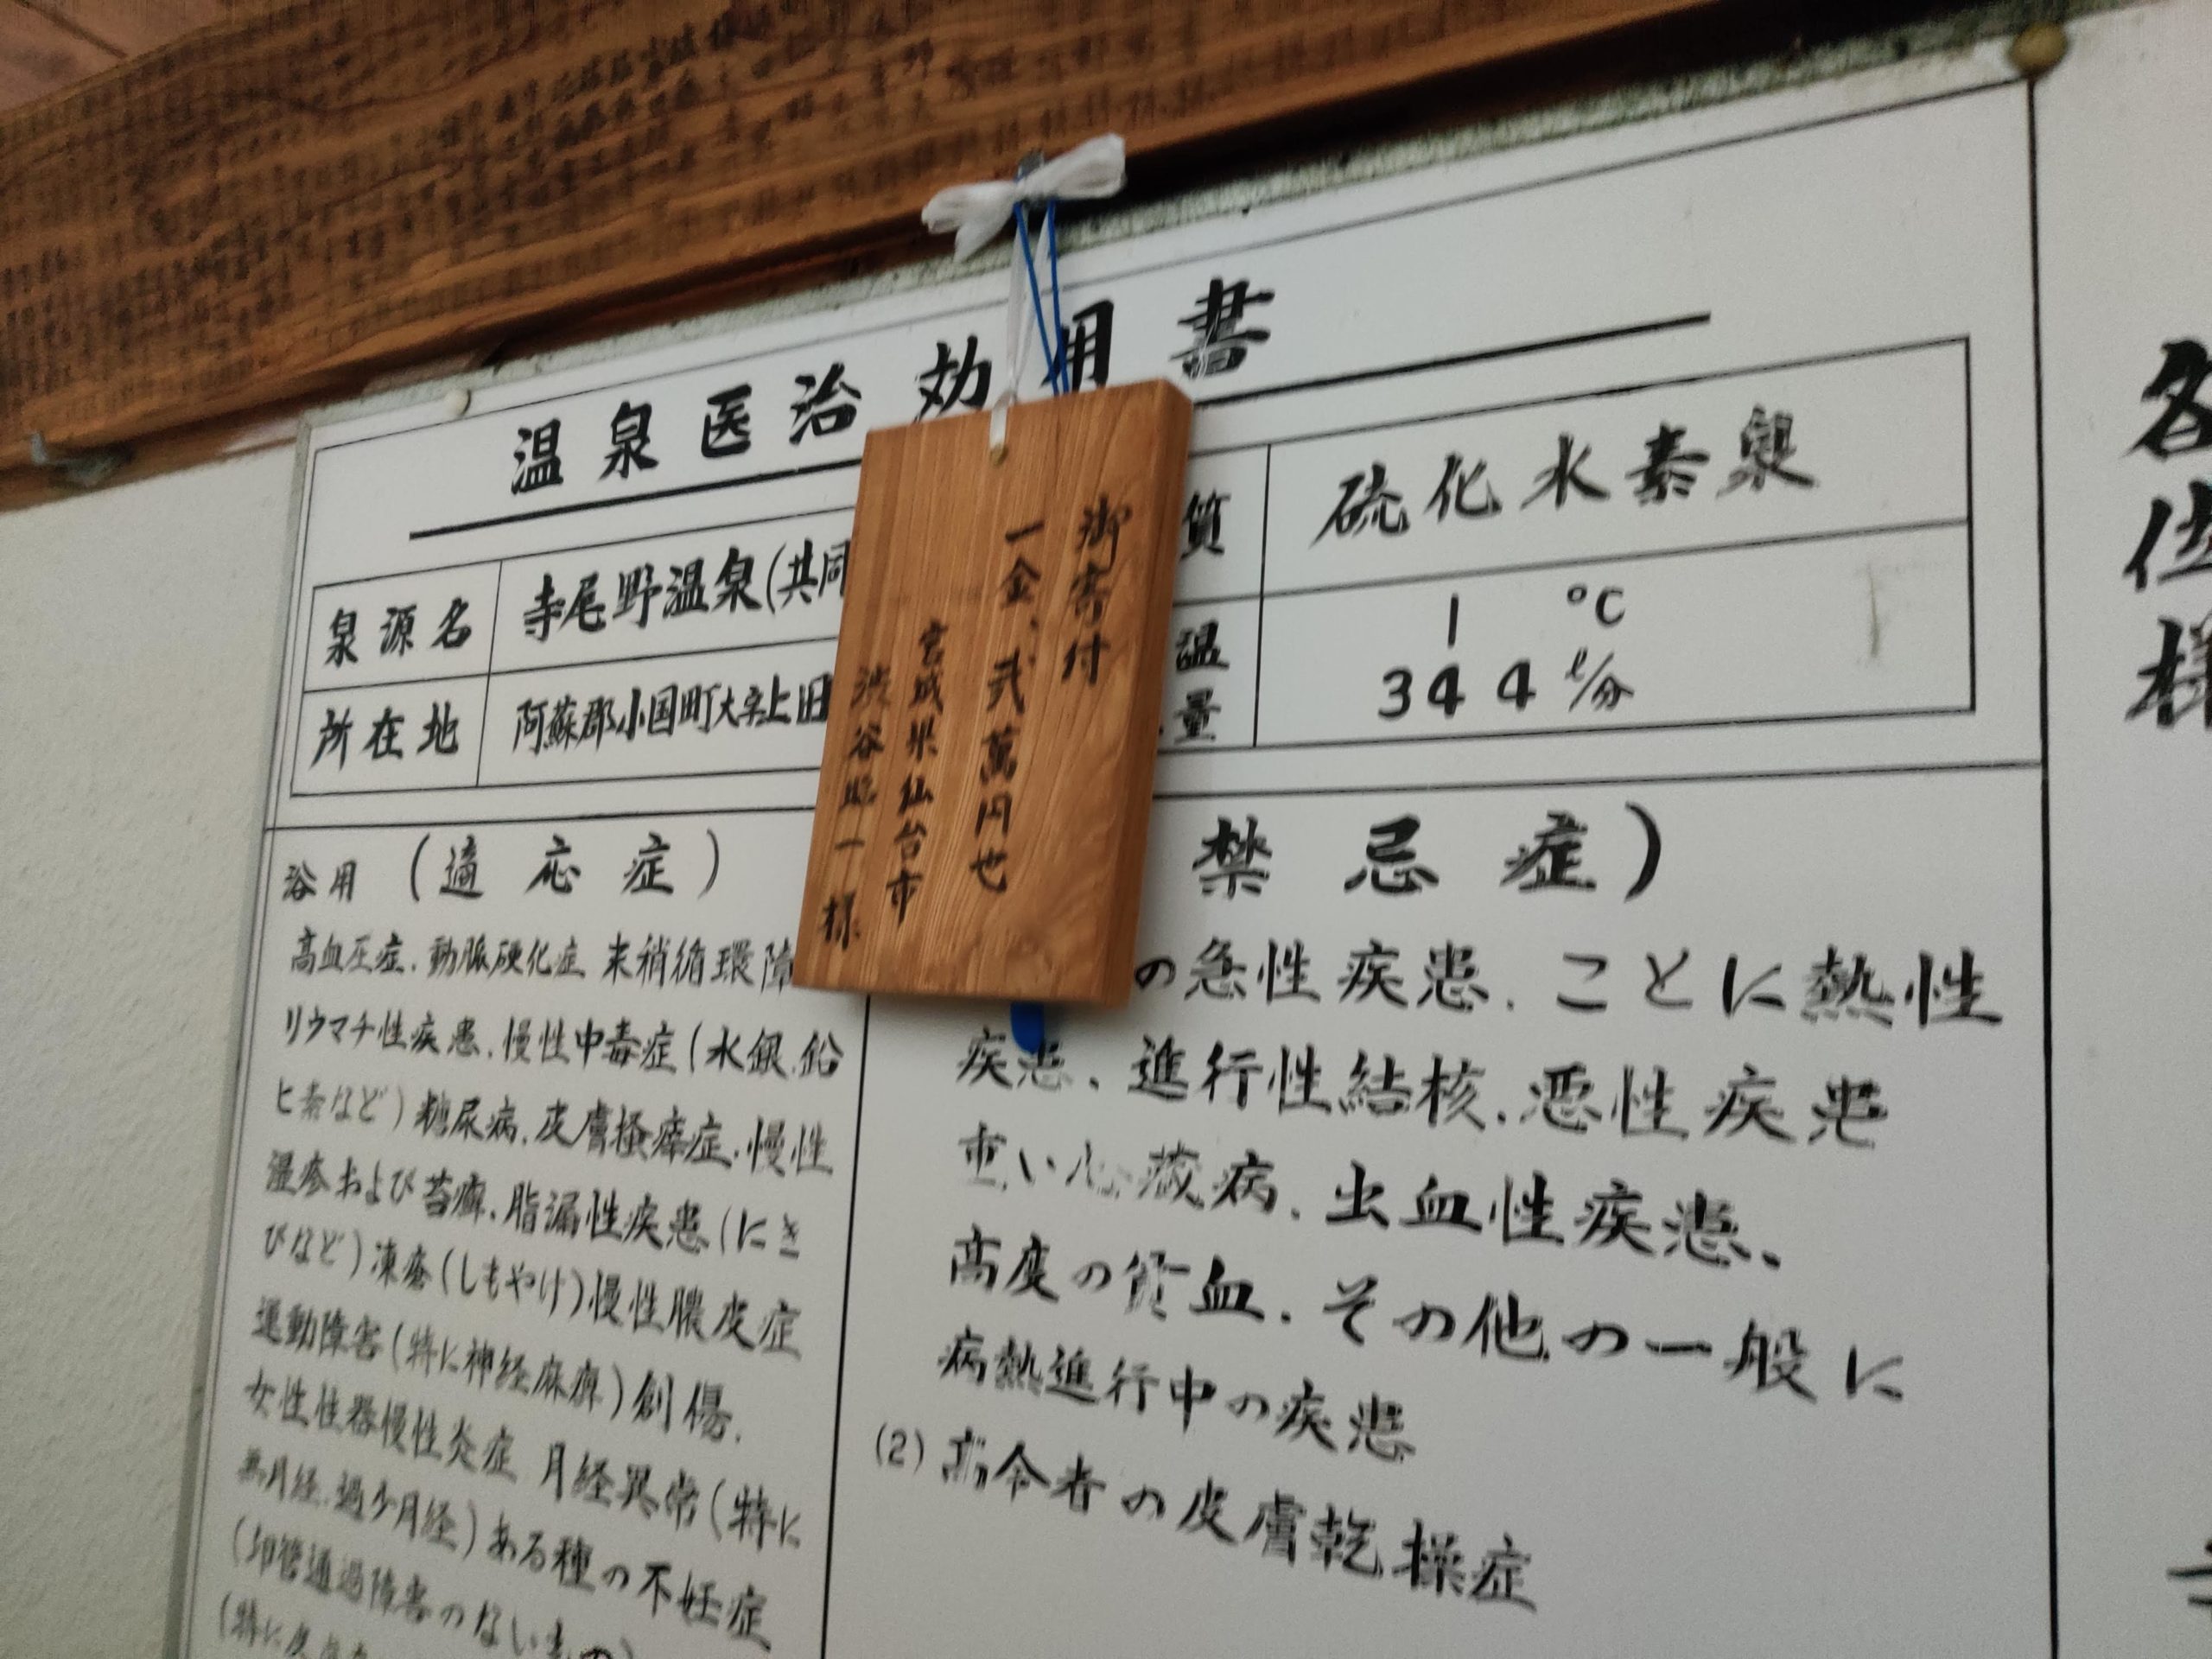 温泉医治効用書
泉源名
寺尾野温泉(共同
所在地
阿蘇郡小国町大字上田
質
硫化水素泉
温
℃
量
344 ℓ/分
御寄付
一金、弐萬円也
宮城県仙台市
渋谷昭一様
浴用 (適応症)
高血圧症.動脈硬化症 末梢循環障
リウマチ性疾患.慢性中毒症(水銀.鉛
ヒ素など)糖尿病.皮膚掻痒症.慢性
湿疹および苔癬.脂漏性疾患(にき
びなど)凍瘡(しもやけ)慢性膿皮症
運動障害(特に神経麻痺)創傷.
女性性器慢性炎症 月経異常(特に
無月経.過少月経)ある種の不妊症
(卵管通過障害のないもの)
(特に
禁忌症)
の急性疾患.ことに熱性
疾患、進行性結核.悪性疾患
重い心臓病.出血性疾患、
高度の貧血.その他の一般に
病熱進行中の疾患
(2) 高令者の皮膚乾操症
各位様